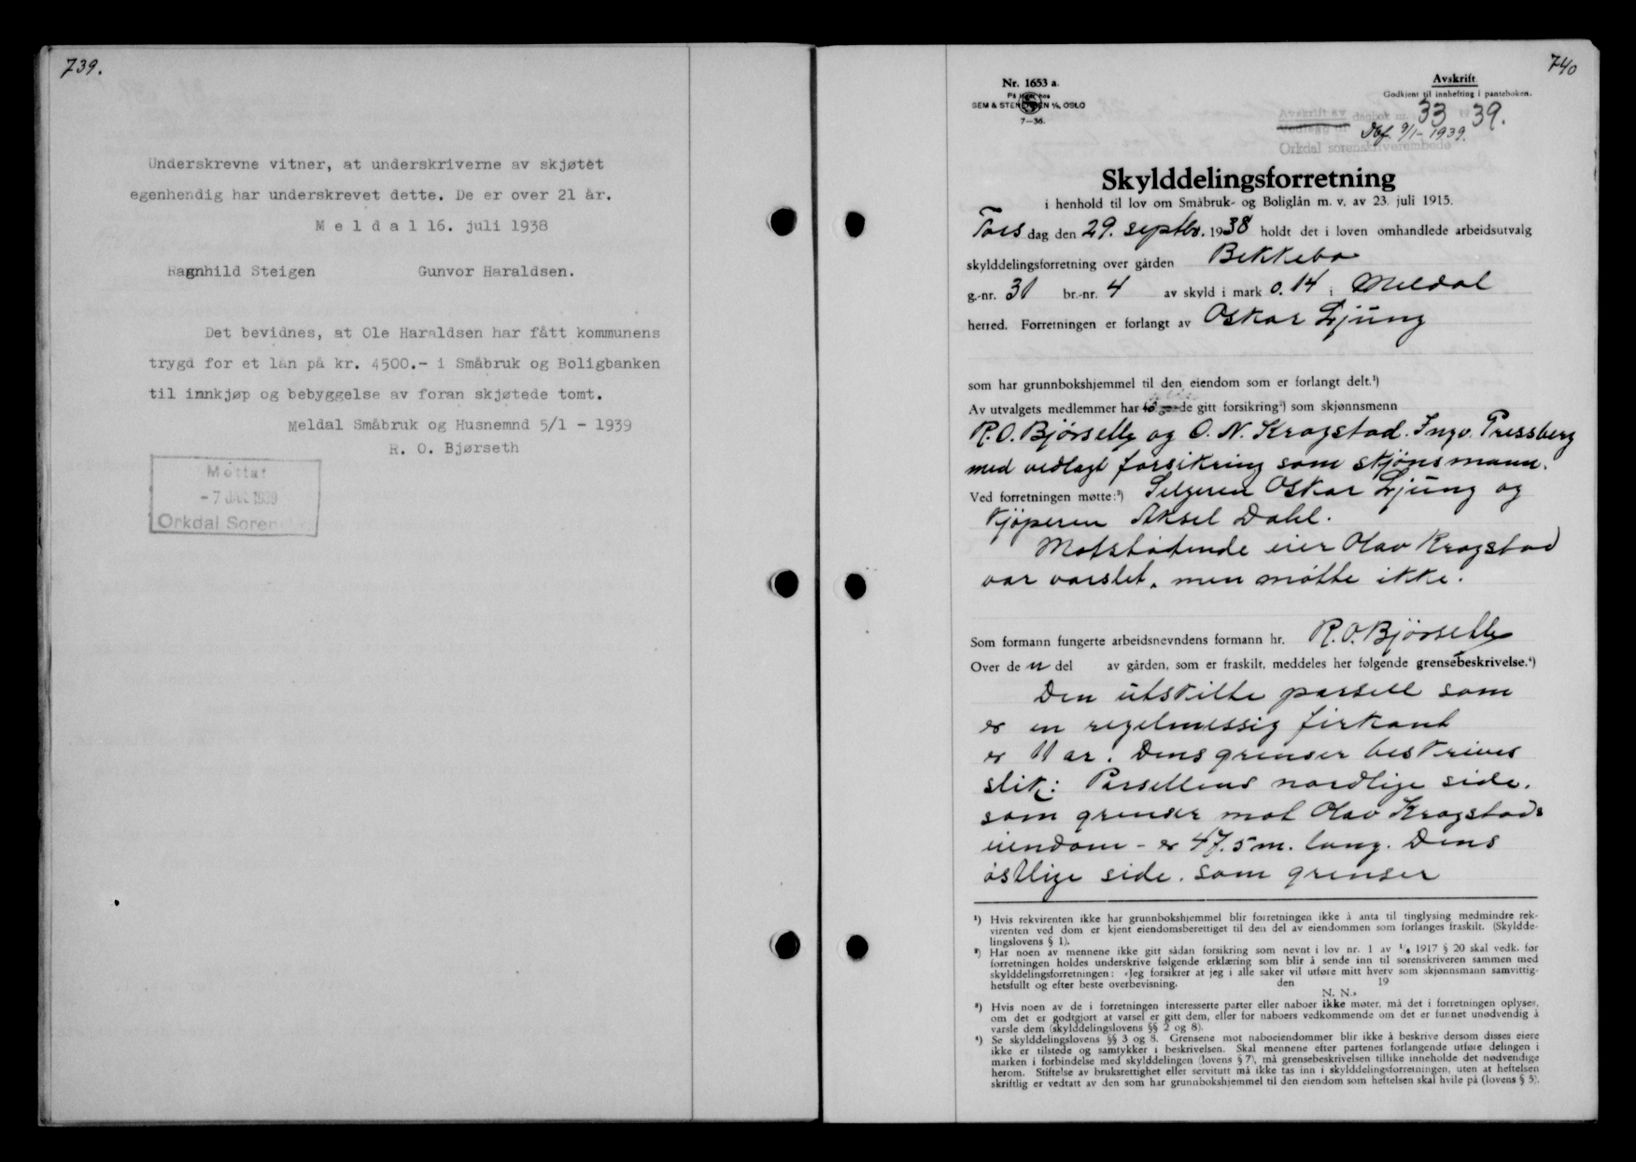 739.
Underskrevne vitner, at underskriverne av skjøtet
egenhendig har underskrevet dette. De er over 21 år.
M e l d a l 16. juli 1938
Ragnhild Steigen Gunvor Haraldsen.
Det bevidnes, at Ole Haraldsen har fått kommunens
trygd for et lån på kr. 4500.- i Småbruk og Boligbanken
til innkjøp og bebyggelse av foran skjøtede tomt.
Meldal Småbruk og Husnemnd 5/1 - 1939
R. O. Bjørseth
Mottat
-7 JAN 1939
Orkdal Soren
740
Nr. 1653 a.
SEM & STENERSEN A/S, OSLO
7—36.
Avskrift
Godkjent til innhefting i panteboken.
Avskrift av dagbok nr. 33 1939.
Vedlegg til Dbf. 9/1-1939.
Orkdal sorenskriverembede
Skylddelingsforretning
i henhold til lov om Småbruk- og Boliglån m. v. av 23. juli 1915.
Torsdag den 29. septbr. 1938 holdt det i loven omhandlede arbeidsutvalg
skylddelingsforretning over gården Bekkebo
g.-nr. 31 br.-nr. 4 av skyld i mark 0.14 i Meldal
herred. Forretningen er forlangt av Oskar Ljung
som har grunnbokshjemmel til den eiendom som er forlangt delt.¹)
Av utvalgets medlemmer har gitt forsikring²) som skjønnsmenn
R.O. Bjørseth og O. N. Krogstad. Ingv. Pressberg
med vedlagt forsikring som skjønsmann.
Ved forretningen møtte:³) Selgeren Oskar Ljung og
kjøperen Aksel Dahl.
Motstøtende eier Olav Krogstad
var varslet, men møtte ikke.
Som formann fungerte arbeidsnevndens formann hr. R.O. Bjørseth
Over de n del av gården, som er fraskilt, meddeles her følgende grensebeskrivelse.⁴)
Den utskilte parsell som
er en regelmessig firkant
er 11 ar. Dens grenser beskrives
slik: Parsellens nordlige side,
som grenser mot Olav Krogstads
eiendom - er 47.5 m. lang. Dens
østlige side, som grenser
¹) Hvis rekvirenten ikke har grunnbokshjemmel blir forretningen ikke å anta til tinglysing medmindre rek-
virenten ved dom er kjent eiendomsberettiget til den del av eiendommen som forlanges fraskilt. (Skyldde-
lingslovens § 1).
²) Har noen av mennene ikke gitt sådan forsikring som nevnt i lov nr. 1 av 1/6 1917 § 20 skal vedk. før
forretningen holdes underskrive følgende erklæring som blir å sende inn til sorenskriveren sammen med
skylddelingsforretningen: «Jeg forsikrer at jeg i alle saker vil utføre mitt hverv som skjønnsmann samvittig-
hetsfullt og efter beste overbevisning. den 19
N. N.»
³) Hvis noen av de i forretningen interesserte parter eller naboer ikke møter, må det i forretningen oplyses,
om det er godtgjort at varsel er gitt dem, eller for naboers vedkommende om det er funnet unødvendig å
varsle dem (skylddelingslovens §§ 2 og 8).
⁴) Se skylddelingslovens §§ 3 og 8. Grensene mot naboeiendommer blir ikke å beskrive dersom disses eiere
ikke er tilstede og samtykker i beskrivelsen. Skal mennene efter partenes forlangende utføre delingen i
marken i forbindelse med skylddelingen (lovens § 7), må grensebeskrivelsen tillike inneholde det nødvendige
herom. Stiftelse av bruksrettighet eller servitutt må ikke tas inn i skylddelingsforretningen, uten at heftelsen
skriftlig er vedtatt av den som har grunnbokshjemmel til den eiendom som heftelsen skal hvile på (lovens § 5).